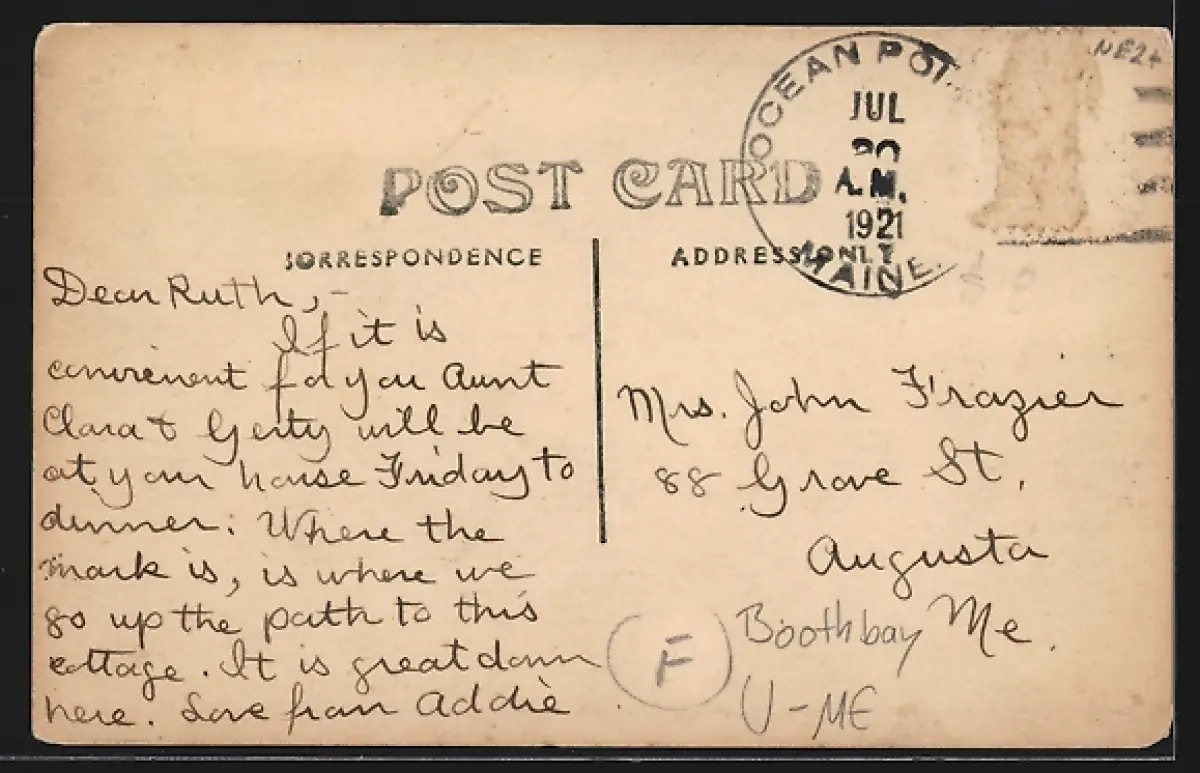 NE2+
OCEAN POI
JUL
20
A.M.
1921
MAINE.
POST CARD
CORRESPONDENCE
ADDRESS ONLY
Dear Ruth,-
If it is
convenient for you Aunt
Clara & Gerty will be
at your house Friday to
dinner. Where the
mark is, is where we
go up the path to this
cottage. It is great down
here. Love from Addie
Mrs. John Frazier
88 Grove St.
Augusta
Me.
Boothbay
F
U-ME